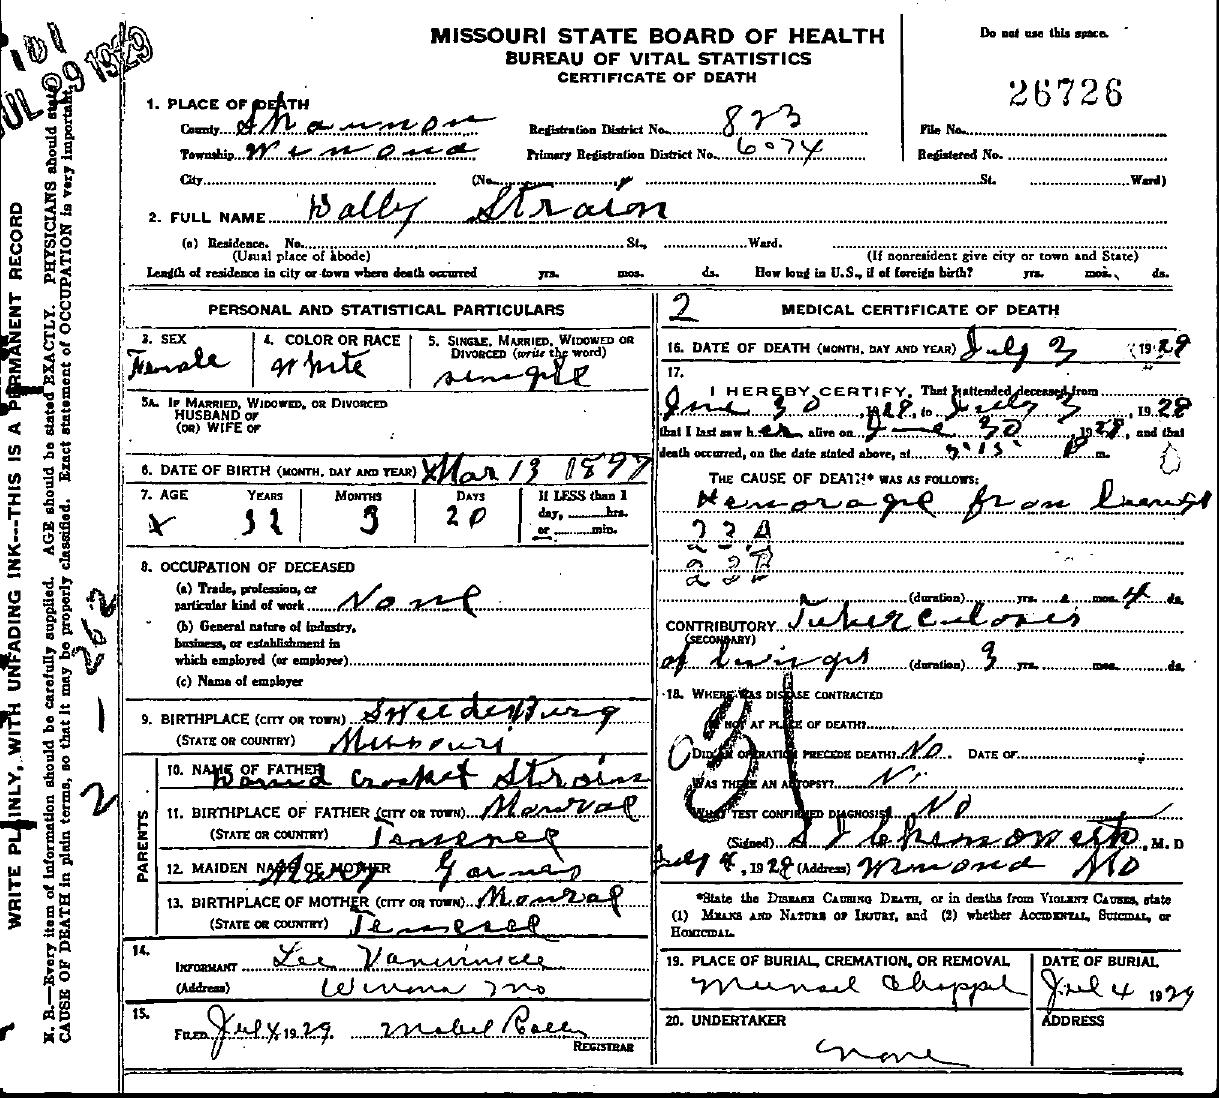 MISSOURI STATE BOARD OF HEALTH
BUREAU OF VITAL STATISTICS
CERTIFICATE OF DEATH
Do not use this space.
26726
JUL 29 1929
1. PLACE OF DEATH
County Shannon Registration District No. 823 File No.
Township Winona Primary Registration District No. 6074 Registered No.
City (No. St. Ward)
2. FULL NAME Dally Strain
(a) Residence. No. St., Ward.
(Usual place of abode) (If nonresident give city or town and State)
Length of residence in city or town where death occurred yrs. mos. ds. How long in U.S., if of foreign birth? yrs. mos. ds.
PERSONAL AND STATISTICAL PARTICULARS
3. SEX 4. COLOR OR RACE 5. SINGLE, MARRIED, WIDOWED OR DIVORCED (write the word)
Female White
5A. IF MARRIED, WIDOWED, OR DIVORCED
HUSBAND OF
(OR) WIFE OF
6. DATE OF BIRTH (MONTH, DAY AND YEAR) Mar 13 1897
7. AGE YEARS MONTHS DAYS If LESS than 1 day, hrs. or min.
32 3 20
8. OCCUPATION OF DECEASED
(a) Trade, profession, or
particular kind of work None
(b) General nature of industry,
business, or establishment in
which employed (or employer)
(c) Name of employer
9. BIRTHPLACE (CITY OR TOWN) SweedeBurg
(STATE OR COUNTRY) Missouri
PARENTS
10. NAME OF FATHER David Crocket Strain
11. BIRTHPLACE OF FATHER (CITY OR TOWN)
(STATE OR COUNTRY)
12. MAIDEN NAME OF MOTHER Mary
13. BIRTHPLACE OF MOTHER (CITY OR TOWN)
(STATE OR COUNTRY)
14.
INFORMANT Lee Vanwinkle
(Address) Winona Mo
15.
FILED July 4 1929 Mabel
REGISTRAR
2 MEDICAL CERTIFICATE OF DEATH
16. DATE OF DEATH (MONTH, DAY AND YEAR) July 3 1929
17.
I HEREBY CERTIFY, That I attended deceased from
June 30, 1928, to July 3, 1928
that I last saw her alive on June 30 1928, and that
death occurred, on the date stated above, at 3:15 P m.
THE CAUSE OF DEATH* WAS AS FOLLOWS:
Hemorage from
(duration) yrs. mos. 4 ds.
CONTRIBUTORY Tuberculosis
(SECONDARY)
of (duration) 3 yrs. mos. ds.
18. WHERE WAS DISEASE CONTRACTED
IF NOT AT PLACE OF DEATH?
DID AN OPERATION PRECEDE DEATH? No. DATE OF
WAS THERE AN AUTOPSY? No
WHAT TEST CONFIRMED DIAGNOSIS? No
(Signed) , M. D
July 4, 1929 (Address) Winona Mo
*State the DISEASE CAUSING DEATH, or in deaths from VIOLENT CAUSES, state
(1) MEANS AND NATURE OF INJURY, and (2) whether ACCIDENTAL, SUICIDAL, or
HOMICIDAL.
19. PLACE OF BURIAL, CREMATION, OR REMOVAL DATE OF BURIAL
Chappel Jul 4 1929
20. UNDERTAKER ADDRESS
None
WRITE PLAINLY, WITH UNFADING INK---THIS IS A PERMANENT RECORD
N. B.—Every item of information should be carefully supplied. AGE should be stated EXACTLY. PHYSICIANS should state
CAUSE OF DEATH in plain terms, so that it may be properly classified. Exact statement of OCCUPATION is very important.